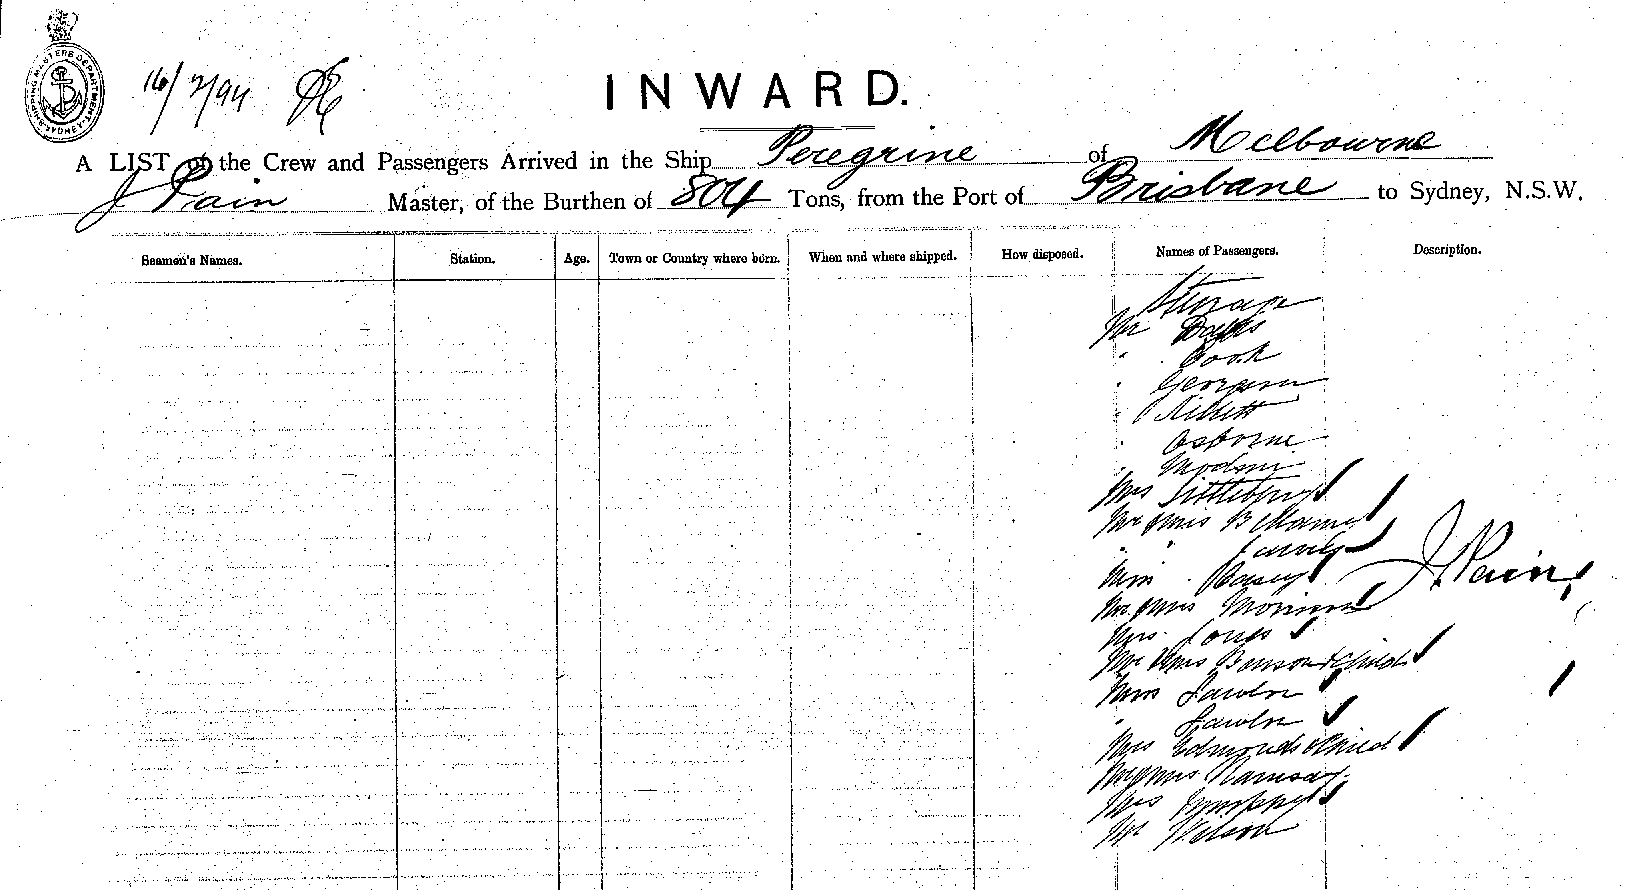 SHIPPING MASTERS DEPARTMENT
16/2/94
INWARD.
A LIST of the Crew and Passengers Arrived in the Ship Peregrine of Melbourne
J Pain Master, of the Burthen of 804 Tons, from the Port of Brisbane to Sydney, N.S.W.
Seamen's Names. Station. Age. Town or Country where born. When and where shipped. How disposed. Names of Passengers. Description.
Steerage
Mr
" Cook
"
"
" Osborne
"
Mrs
Mr & Mrs Bellamy
" "
Miss Casey
J. Pain
Mr & Mrs
Mrs Jones
Mr & Mrs Benson & Child
Miss Lawlor
" Lawlor
Mrs Edmonds & Child
Mr & Mrs Ramsay
Mrs
Mr Nelson